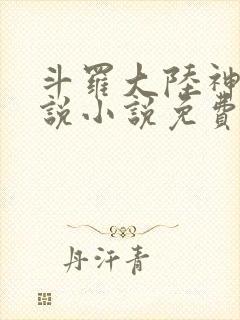 斗羅大陸神
說小說免費
丹汗青